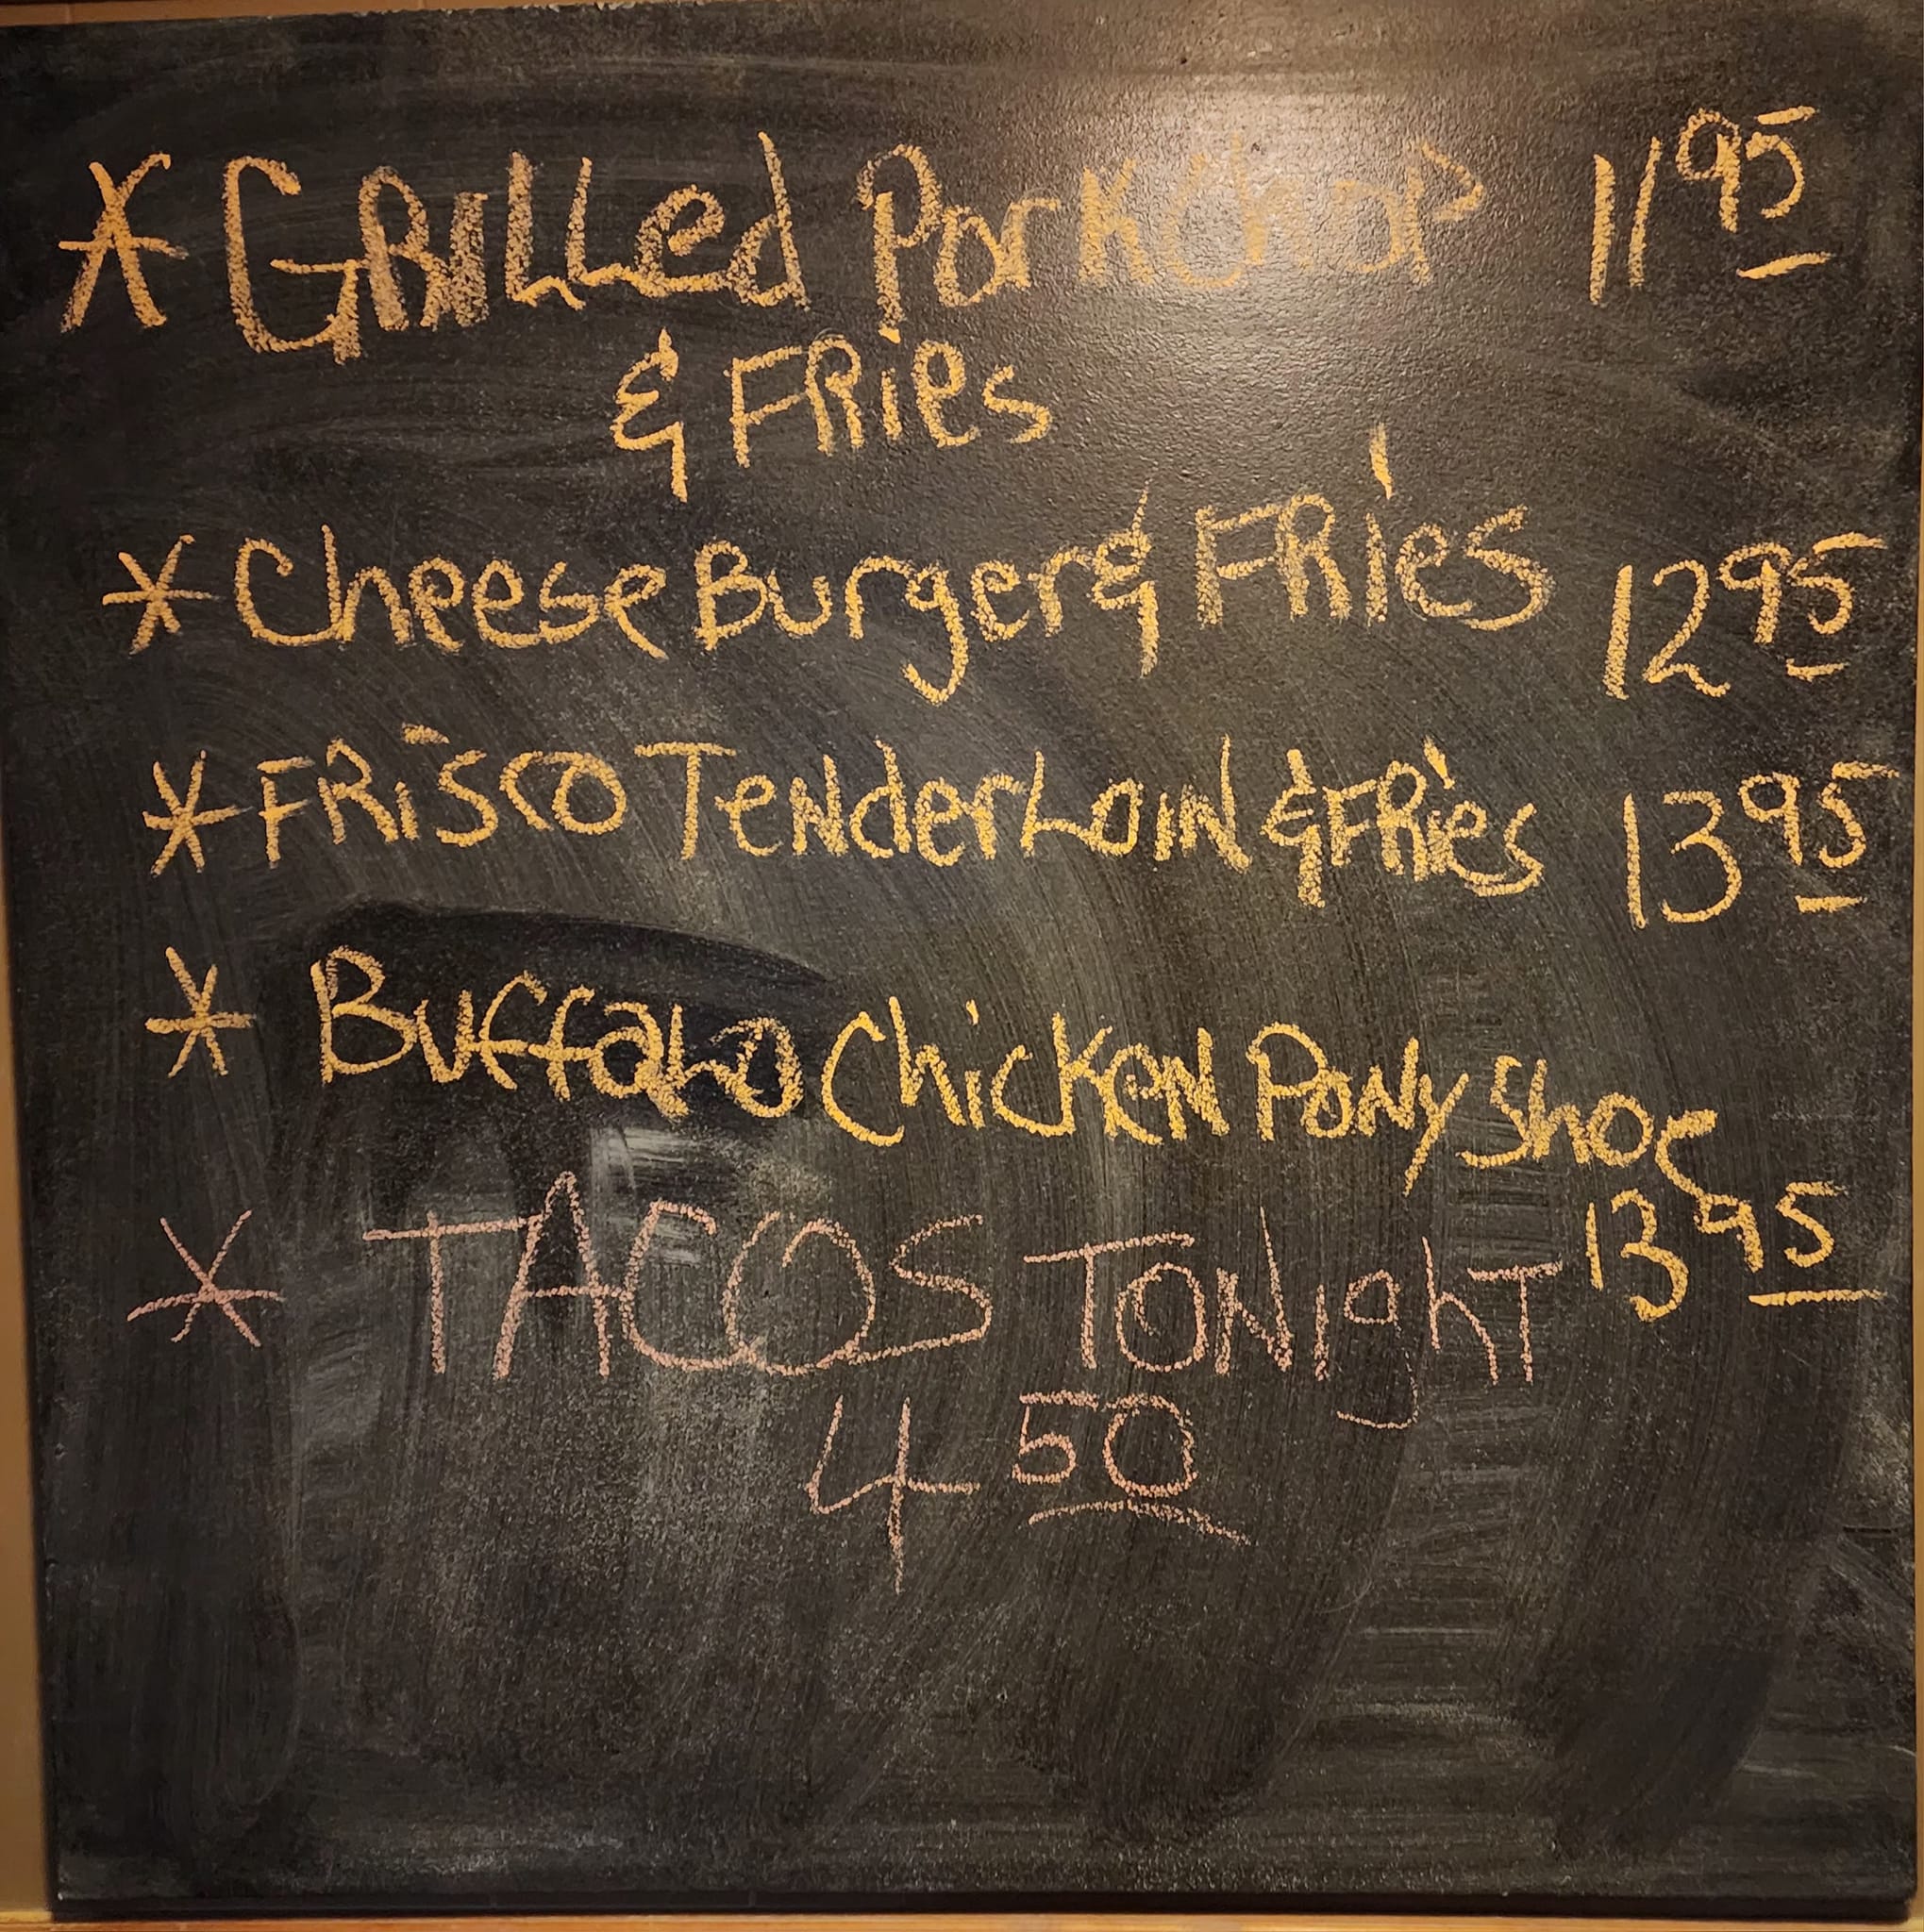 * GRILLed Pork Chop 11 95
& FRies
* Cheese Burger & FRies 12 95
* FRisco TeNderLoiN & FRies 13 95
* BuffaLo ChickeN PoNy Shoe
13 95
* TACOS TONighT
4 50